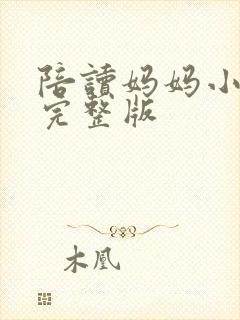 陪讀妈妈小
完整版
木凰